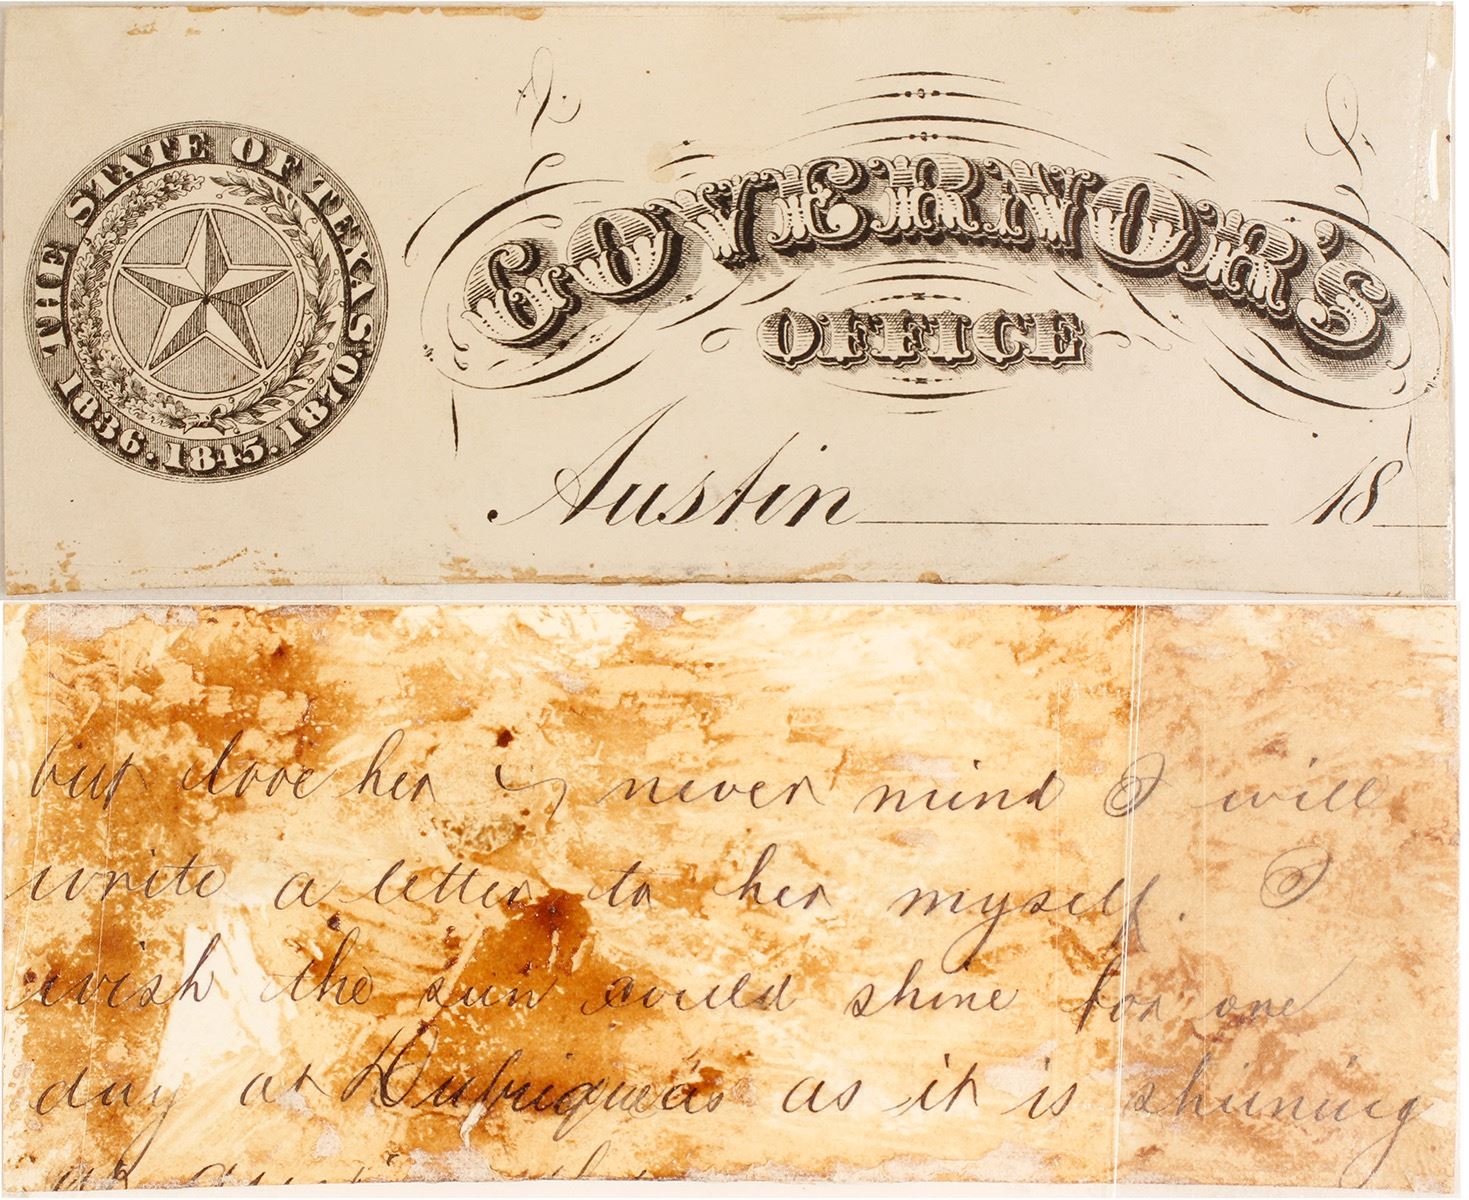 THE STATE OF TEXAS
1836. 1845. 1870.
GOVERNOR'S
OFFICE
Austin 18
but love her never mind I will
write a letter to her myself. I
wish the sun could shine for one
day at as it is shining